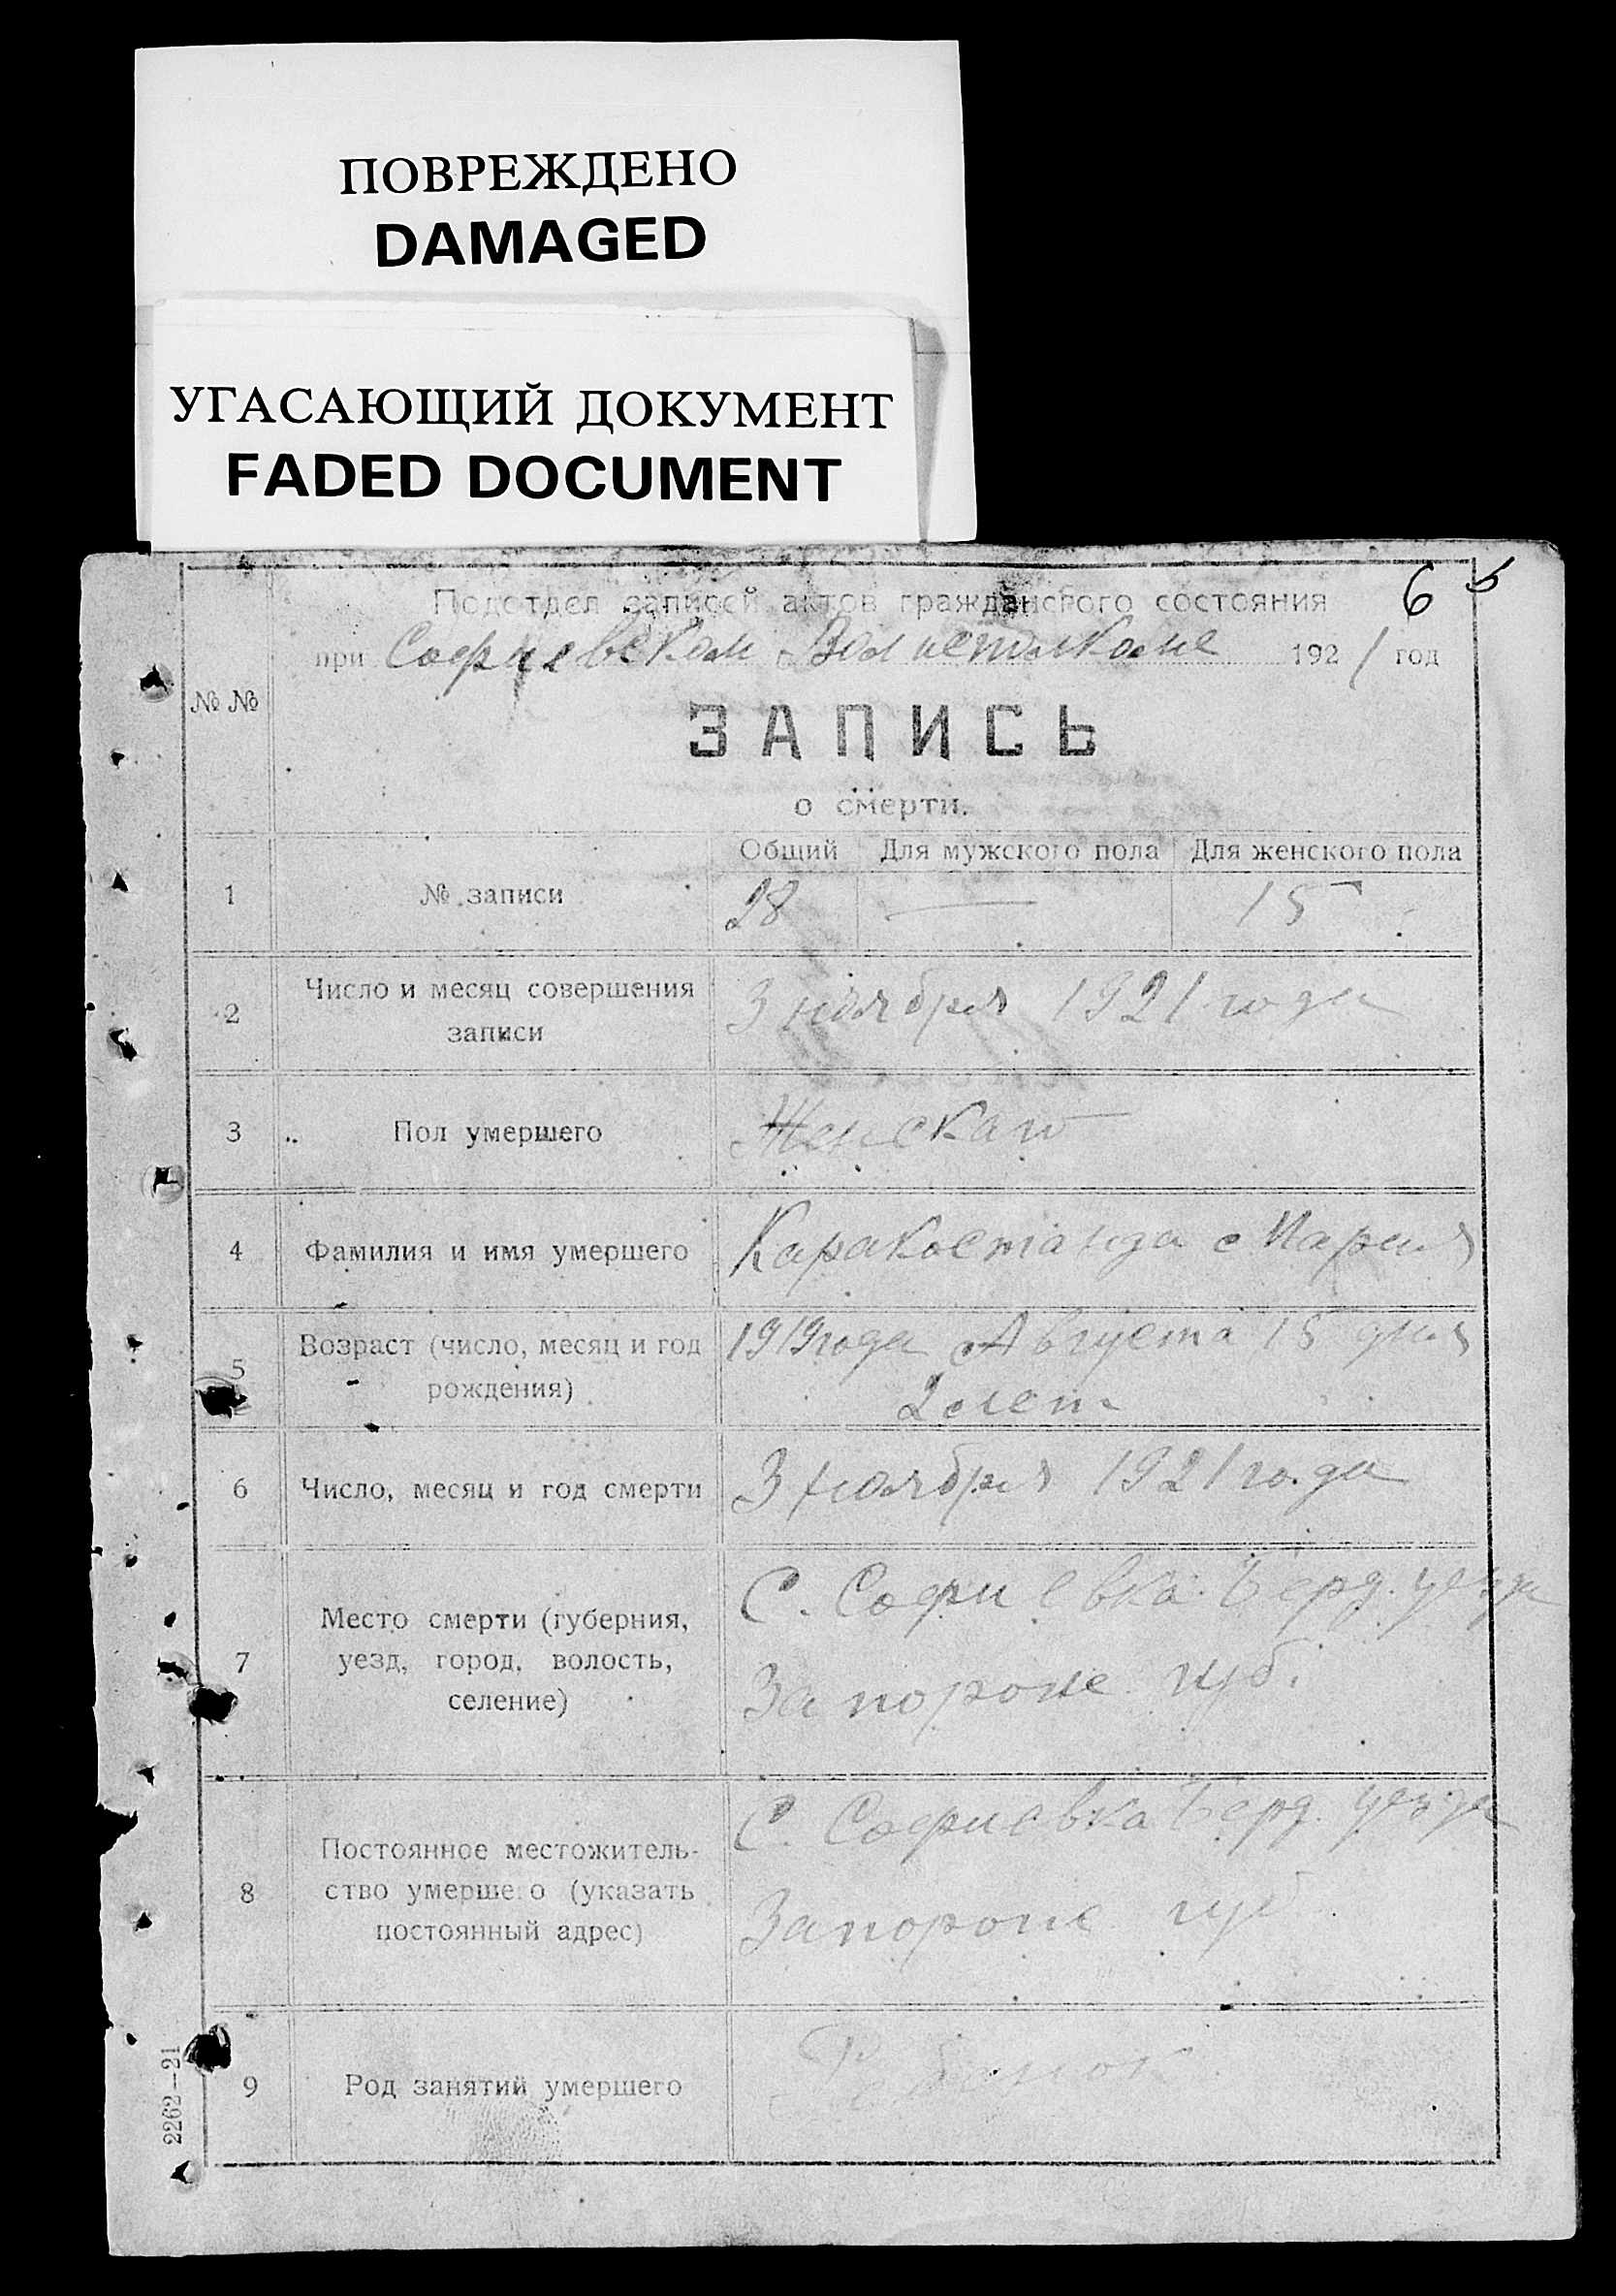 ПОВРЕЖДЕНО
DAMAGED
УГАСАЮЩИЙ ДОКУМЕНТ
FADED DOCUMENT
6
Подотдел записей актов гражданского состояния
при Софиевском Волисполкоме 1921 год
№ №
ЗАПИСЬ
о смерти.
Общий Для мужского пола Для женского пола
1 № записи 28 — 15
2 Число и месяц совершения записи 3 ноября 1921 года
3 Пол умершего Женскаго
4 Фамилия и имя умершего Каракостанда Мария
5 Возраст (число, месяц и год рождения) 1919 года Августа 15 дня
2 лет
6 Число, месяц и год смерти 3 ноября 1921 года
7 Место смерти (губерния, уезд, город, волость, селение) С. Софиевка Берд. уезда
Запорож. губ.
8 Постоянное местожитель-ство умершего (указать постоянный адрес) С. Софиевка Берд. уезда
Запорож. губ
9 Род занятий умершего Ребенок
2262—21